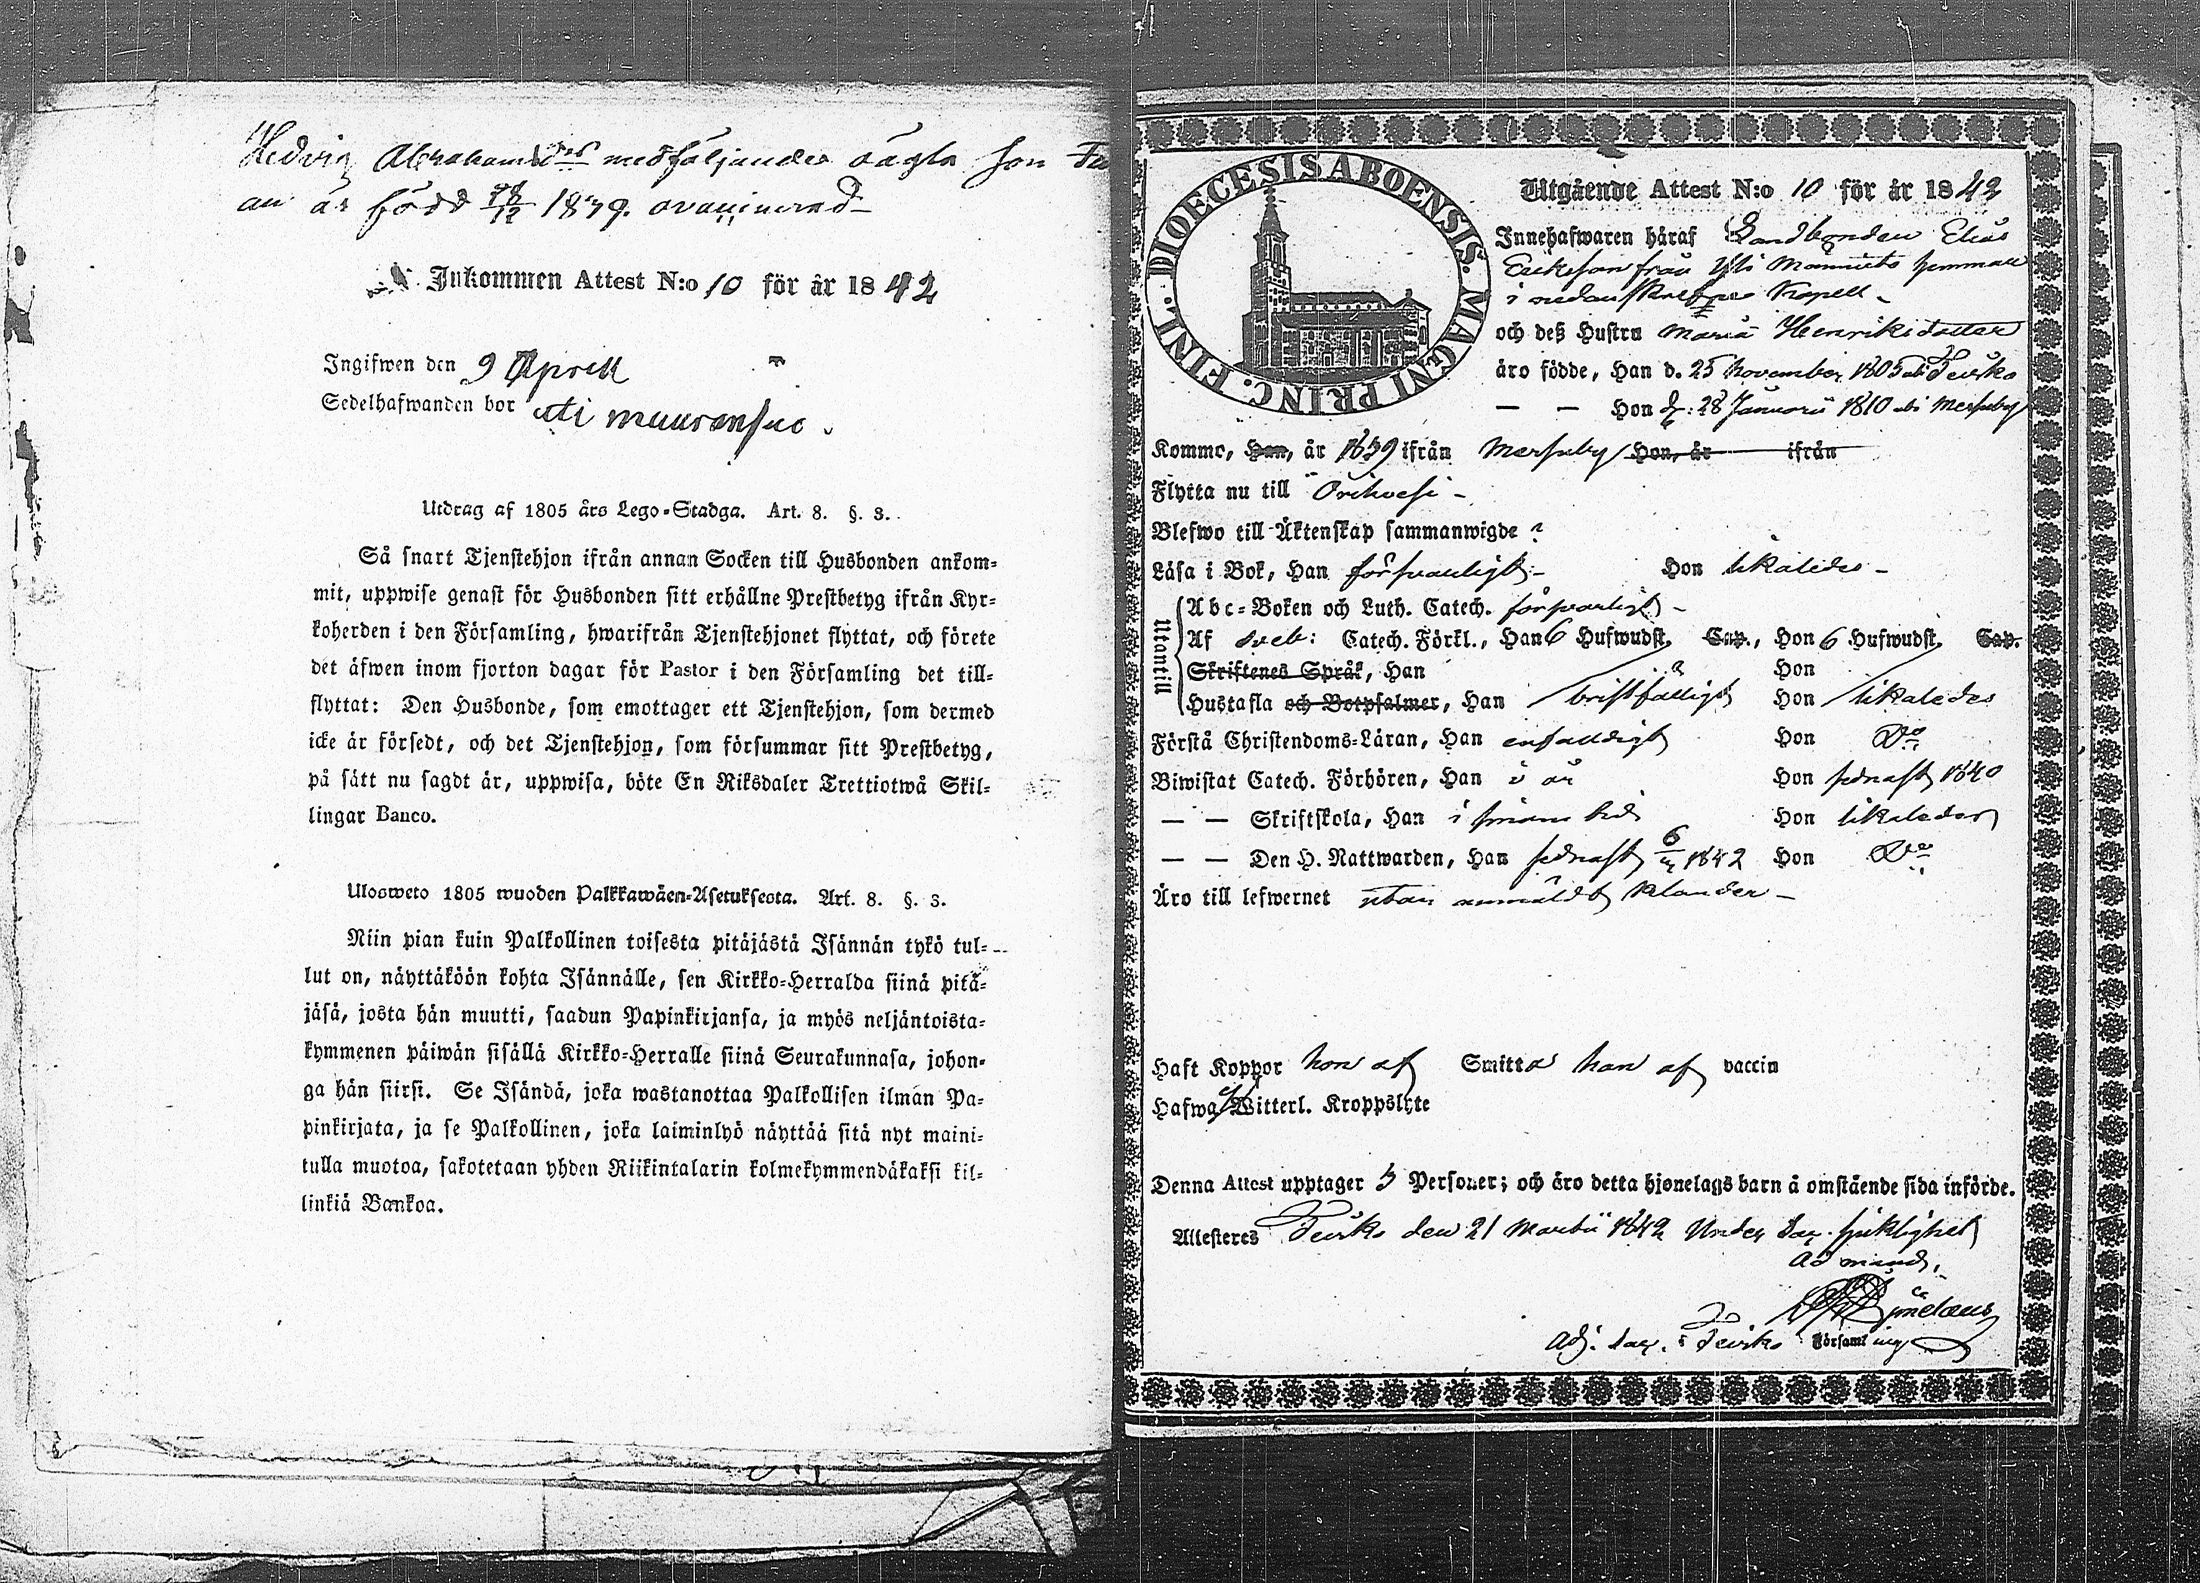 Hedvig Abrahamsdr medföljandes oägta son
an är född 28/12 1839. ovaccinerad
Inkommen Attest N:o 10 för år 1842
Ingifwen den 9 April
Sedelhafwanden bor
Utdrag af 1805 års Lego-Stadga. Art. 8. §. 3.
Så snart Tjenstehjon ifrån annan Socken till Husbonden ankom-
mit, uppwise genast för Husbonden sitt erhållne Prestbetyg ifrån Kyr-
koherden i den Församling, hwarifrån Tjenstehjonet flyttat, och förete
det äfwen inom fjorton dagar för Pastor i den Församling det till-
flyttat: Den Husbonde, som emottager ett Tjenstehjon, som dermed
icke är försedt, och det Tjenstehjon, som försummar sitt Prestbetyg,
på sätt nu sagdt är, uppwisa, böte En Riksdaler Trettiotwå Skil-
lingar Banco.
Ulosweto 1805 wuoden Palkkawäen-Asetuksesta. Art. 8. §. 3.
Niin pian kuin Palkollinen toisesta pitäjästä Isännän tykö tul-
lut on, näyttäköön kohta Isännälle, sen Kirkko-Herralda siinä pitä-
jäsä, josta hän muutti, saadun Papinkirjansa, ja myös neljäntoista-
kymmenen päiwän sisällä Kirkko-Herralle siinä Seurakunnasa, johon-
ga hän siirsi. Se Isändä, joka wastanottaa Palkollisen ilman Pa-
pinkirjata, ja se Palkollinen, joka laiminlyö näyttää sitä nyt maini-
tulla muotoa, sakotetaan yhden Riikintalarin kolmekymmendäkaksi kil-
linkiä Bankoa.
DIOECESIS ABOENSIS. MAGNI PRINC. FINL.
Utgående Attest N:o 10 för år 1842
Innehafwaren häraf Landbonden Elias
Eriksson från Yli hemman
i nedanskrefne Kapell
och deß Hustru Maria Henriksdotter
äro födde, Han d. 25 November 1805 i
— — Hon d: 28 Januarii 1810 i
Komme, Han, år 1839 ifrån Hon, år ifrån
Flytta nu till Orihvesi
Blefwo till Äktenskap sammanwigde ?
Läsa i Bok, Han försvarligt Hon likaledes
Utantill
Abc-Boken och Luth. Catech. försvarligt
Af Sveb: Catech. Förkl., Han 6 Hufwudst. Cap., Hon 6 Hufwudst. Cap.
Skriftenes Språk, Han Hon
Hustafla och Botpsalmer, Han bristfälligt Hon likaledes
Förstå Christendoms-Läran, Han enfaldigt Hon Do
Biwistat Catech. Förhören, Han i år Hon sednast 1840
— — Skriftskola, Han i sinom tid Hon likaledes
— — Den H. Nattwarden, Han sednast 1842 Hon Do
Äro till lefwernet utan anmäldt klander
Haft Koppor hon af Smitt Smitta han af vaccin
Hafwa Witterl. Kroppslyte
Denna Attest upptager 3 Personer; och äro detta hjonelags barn å omstående sida införde.
Attesteres den 21 Martii 1842 Under Sac. siuklighet
Ad mand,
Adj. Sac. i Församling